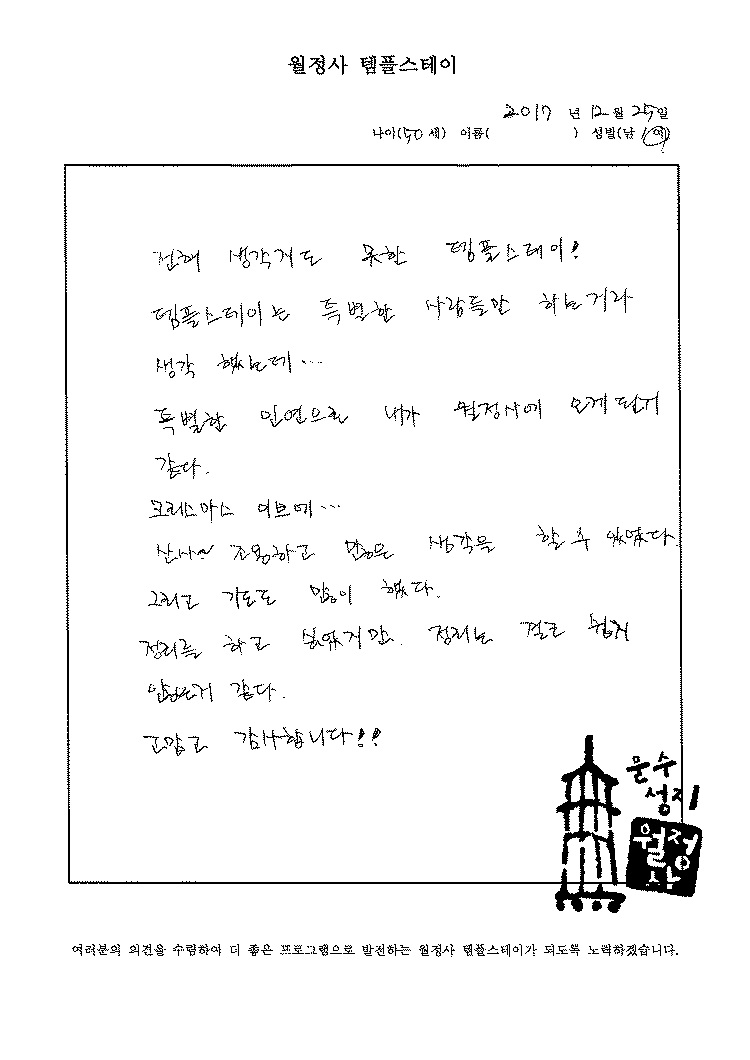 월정사 템플스테이
2017 년 12월 25일
나이(50 세) 이름( ) 성별(남 / 여)
전혀 생각지도 못한 템플스테이!
템플스테이는 특별한 사람들만 하는거라
생각 했는데...
특별한 인연으로 내가 월정사에 오게 된거
같다.
크리스마스 이브에...
산사~ 조용하고 많은 생각을 할 수 있었다.
그리고 기도도 많이 했다.
정리를 하고 싶었지만. 정리는 결코 쉽지
않는거 같다.
고맙고 감사합니다!!
문수
성지
월정
사
여러분의 의견을 수렴하여 더 좋은 프로그램으로 발전하는 월정사 템플스테이가 되도록 노력하겠습니다.